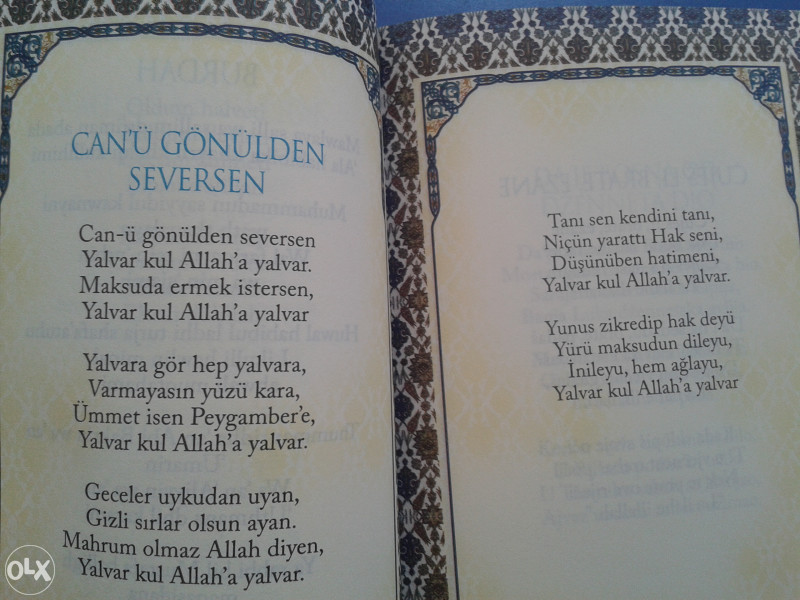 CAN'Ü GÖNÜLDEN
SEVERSEN
Can-ü gönülden seversen
Yalvar kul Allah'a yalvar.
Maksuda ermek istersen,
Yalvar kul Allah'a yalvar
Yalvara gör hep yalvara,
Varmayasın yüzü kara,
Ümmet isen Peygamber'e,
Yalvar kul Allah'a yalvar.
Geceler uykudan uyan,
Gizli sırlar olsun ayan.
Mahrum olmaz Allah diyen,
Yalvar kul Allah'a yalvar.
Tanı sen kendini tanı,
Niçün yarattı Hak seni,
Düşünüben hatimeni,
Yalvar kul Allah'a yalvar.
Yunus zikredip hak deyü
Yürü maksudun dileyu,
İnileyu, hem ağlayu,
Yalvar kul Allah'a yalvar
OLX